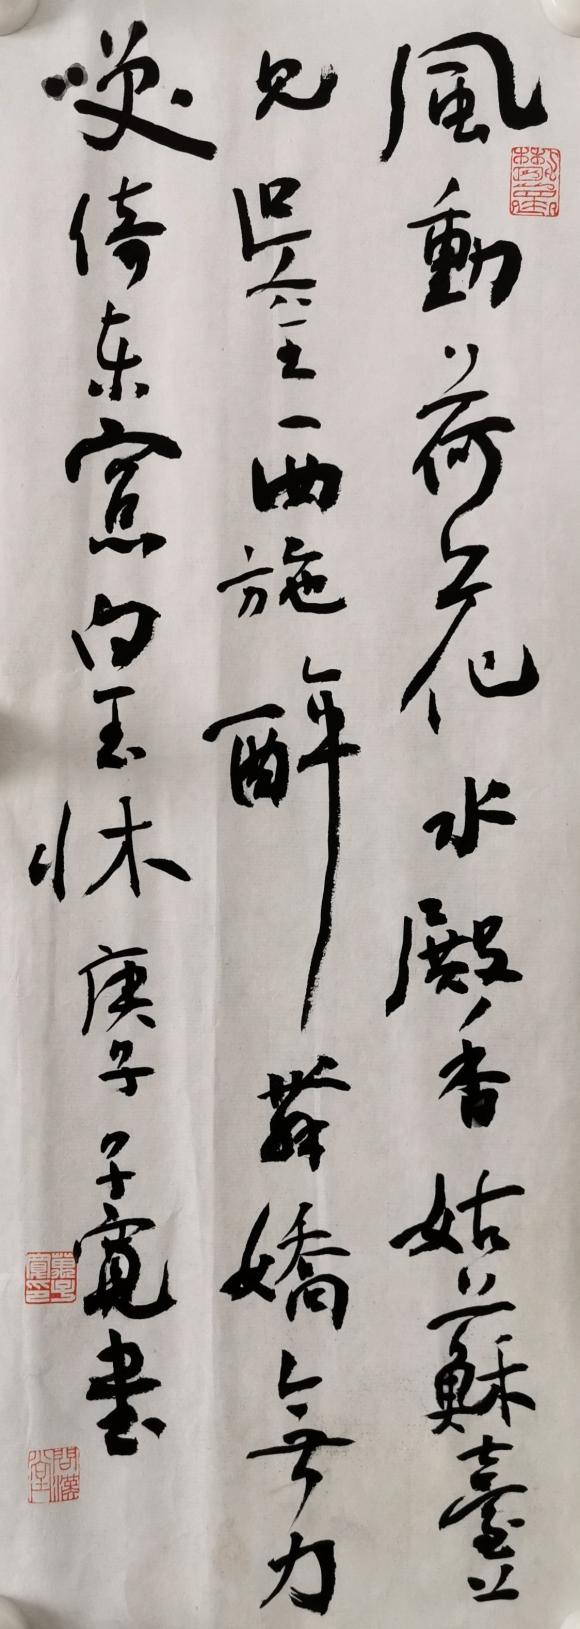 風動荷花水殿香姑蘇臺上
見吳王西施醉舞嬌無力
笑倚东窓白玉床庚子子寬書
問漢堂